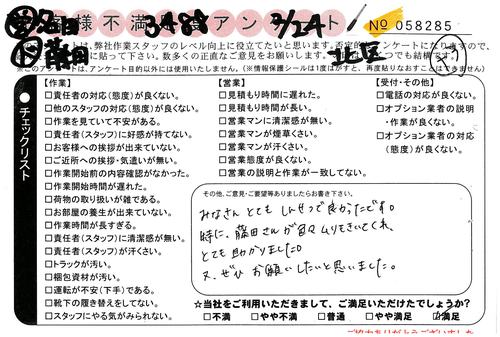 様 不満 アンケート
3488 2/24
No 058285
北区
藤田
トは、弊社作業スタッフのレベル向上に役立てたいと思います。否定的
に貼って下さい。数多くの正直なご意見をお願い
※このアンケートは、アンケート目的以外には使用いたしません。(※情報保護シールは1度はがすと、再度貼りなおすことはできません)
チェックリスト
【作業】
□責任者の対応(態度)が良くない。
□他のスタッフの対応(態度)が良くない。
□作業を見ていて不安がある。
□責任者(スタッフ)に好感が持てない。
□お客様への挨拶が出来ていない。
□ご近所への挨拶・気遣いが無い。
□作業開始前の内容確認がなかった。
□作業開始時間が遅れた。
□荷物の取り扱いが雑である。
□お部屋の養生が出来ていない。
□作業時間が長すぎる。
□責任者(スタッフ)に清潔感が無い。
□責任者(スタッフ)が汗くさい。
□トラックが汚い。
□梱包資材が汚い。
□運転が不安(下手)である。
□靴下の履き替えをしてない。
□スタッフにやる気がみられない。
【営業】
□見積もり時間に遅れた。
□見積もり時間が長い。
□営業マンに清潔感が無い。
□営業マンが煙草くさい。
□営業マンが汗くさい。
□営業態度が良くない。
□営業の説明と作業が一致してない。
【受付・その他】
□電話の対応が良くない。
□オプション業者の説明
・作業が良くない。
□オプション業者の対応
(態度)が良くない。
その他、ご意見・ご要望等ありましたらお書き下さい。
みなさん とても しんせつで良かったです。
特に、藤田さんが色々ムリをきいてくれ、
とても助かりました。
又、ぜひ お願いしたいと思いました。
☆当社をご利用いただきまして、ご満足いただけたでしょうか?
□不満 □やや不満 □普通 □やや満足 ☑満足
ご協力ありがとうございました